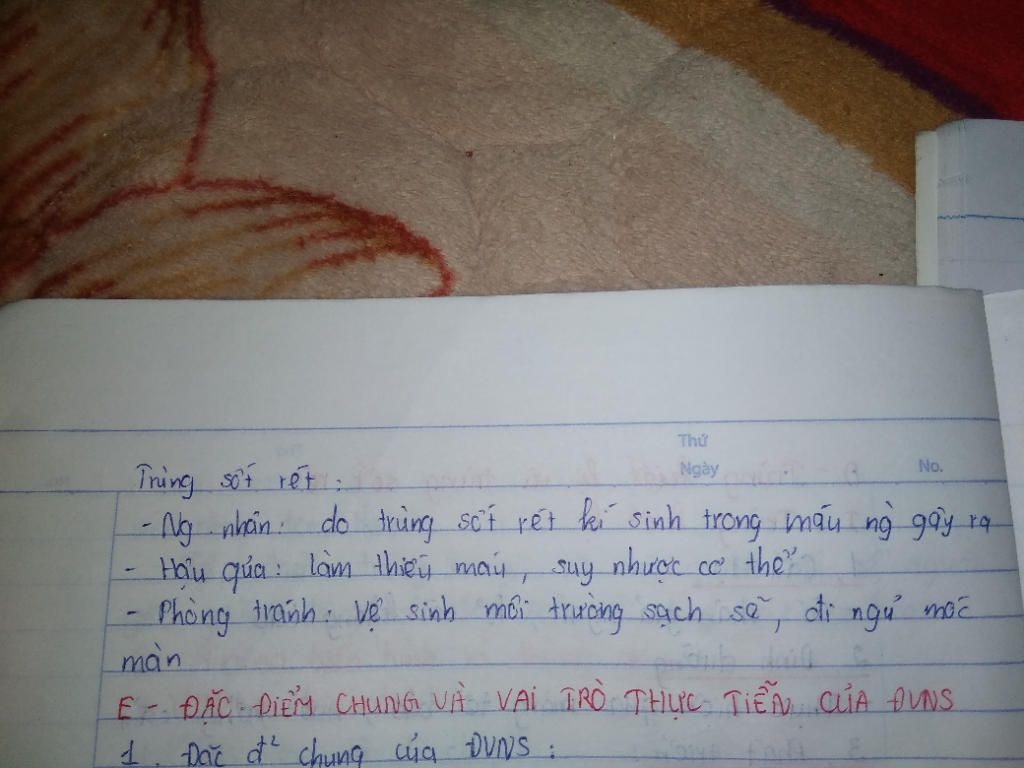 Thứ
Ngày No.
Trùng sốt rét:
- Ng nhân: do trùng sốt rét kí sinh trong máu ng` gây ra
- Hậu qủa: làm thiếu máu, suy nhược cơ thể
- Phòng tránh: Vệ sinh môi trường sạch sẽ, đi ngủ mắc
màn
E - ĐẶC ĐIỂM CHUNG VÀ VAI TRÒ THỰC TIỄN CỦA ĐVNS
1. Đặc đ² chung của ĐVNS: